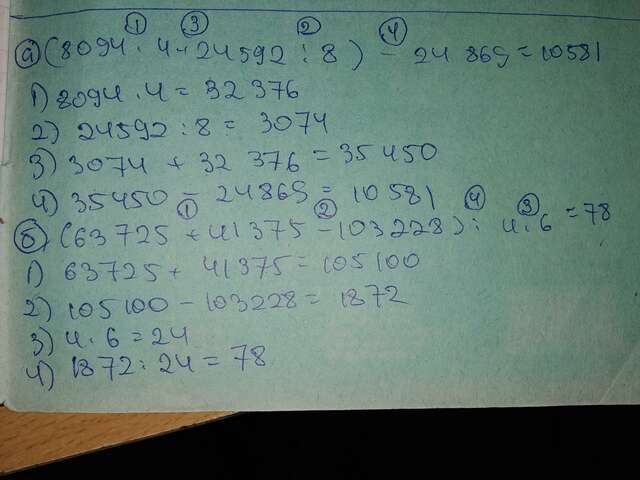 ① ③ ② ④
а) (8094 · 4 + 24592 : 8) - 24 869 = 10581
1) 8094 · 4 = 32 376
2) 24592 : 8 = 3074
3) 3074 + 32 376 = 35450
4) 35450 - 24869 = 10581
① ② ④ ③
б) (63725 + 41375 - 103228) : 4 · 6 = 78
1) 63725 + 41375 = 105100
2) 105100 - 103228 = 1872
3) 4 · 6 = 24
4) 1872 : 24 = 78